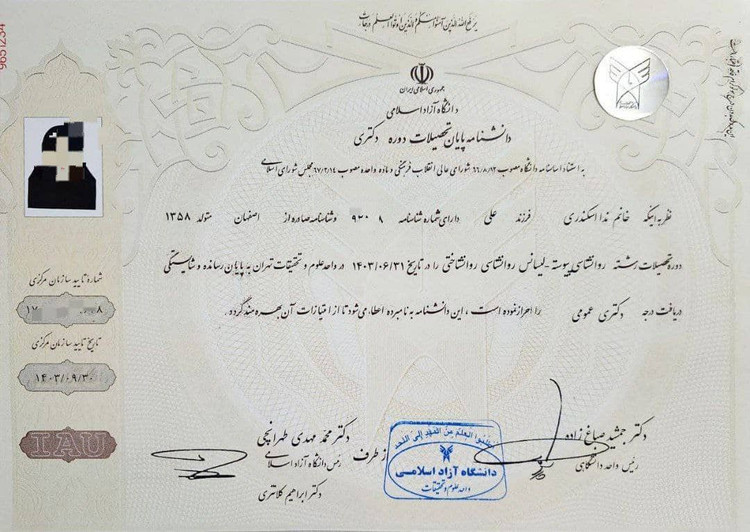 یرفع الله الذین آمنوا منکم والذین اوتوا العلم درجات
9651234
جمهوری اسلامی ایران
دانشگاه آزاد اسلامی
دانشنامه پایان تحصیلات دوره دکتری
به استناد اساسنامه دانشگاه مصوب ۶۶/۸/۱۲ شورای عالی انقلاب فرهنگی و ماده واحده مصوب ۶۷/۲/۱۴ مجلس شورای اسلامی
نظر به اینکه خانم ندا اسکندری فرزند علی دارای شماره شناسنامه ۹۲۰۸ وشناسنامه صادره از اصفهان متولد ۱۳۵۸
دوره تحصیلات رشته روانشناسی پیوسته-لیسانس روانشناسی روانشناختی را در تاریخ ۱۴۰۳/۰۶/۳۱ در واحد علوم و تحقیقات تهران به پایان رسانده و شایستگی
دریافت درجه دکتری عمومی را احراز نموده است ، این دانشنامه به نامبرده اعطاء می‌شود تا از امتیازات آن بهره مند گردد.
شماره تایید سازمان مرکزی
تاریخ تایید سازمان مرکزی
۱۴۰۳/۰۹/۳۰
IAU
دکتر جمشید صباغ زاده
رئیس واحد دانشگاهی
اطلبوا العلم من المهد إلی اللحد
دانشگاه آزاد اسلامی
واحد علوم و تحقیقات
دکتر محمد مهدی طهرانچی
از طرف
رئیس دانشگاه آزاد اسلامی
دکتر ابراهیم کلانتری